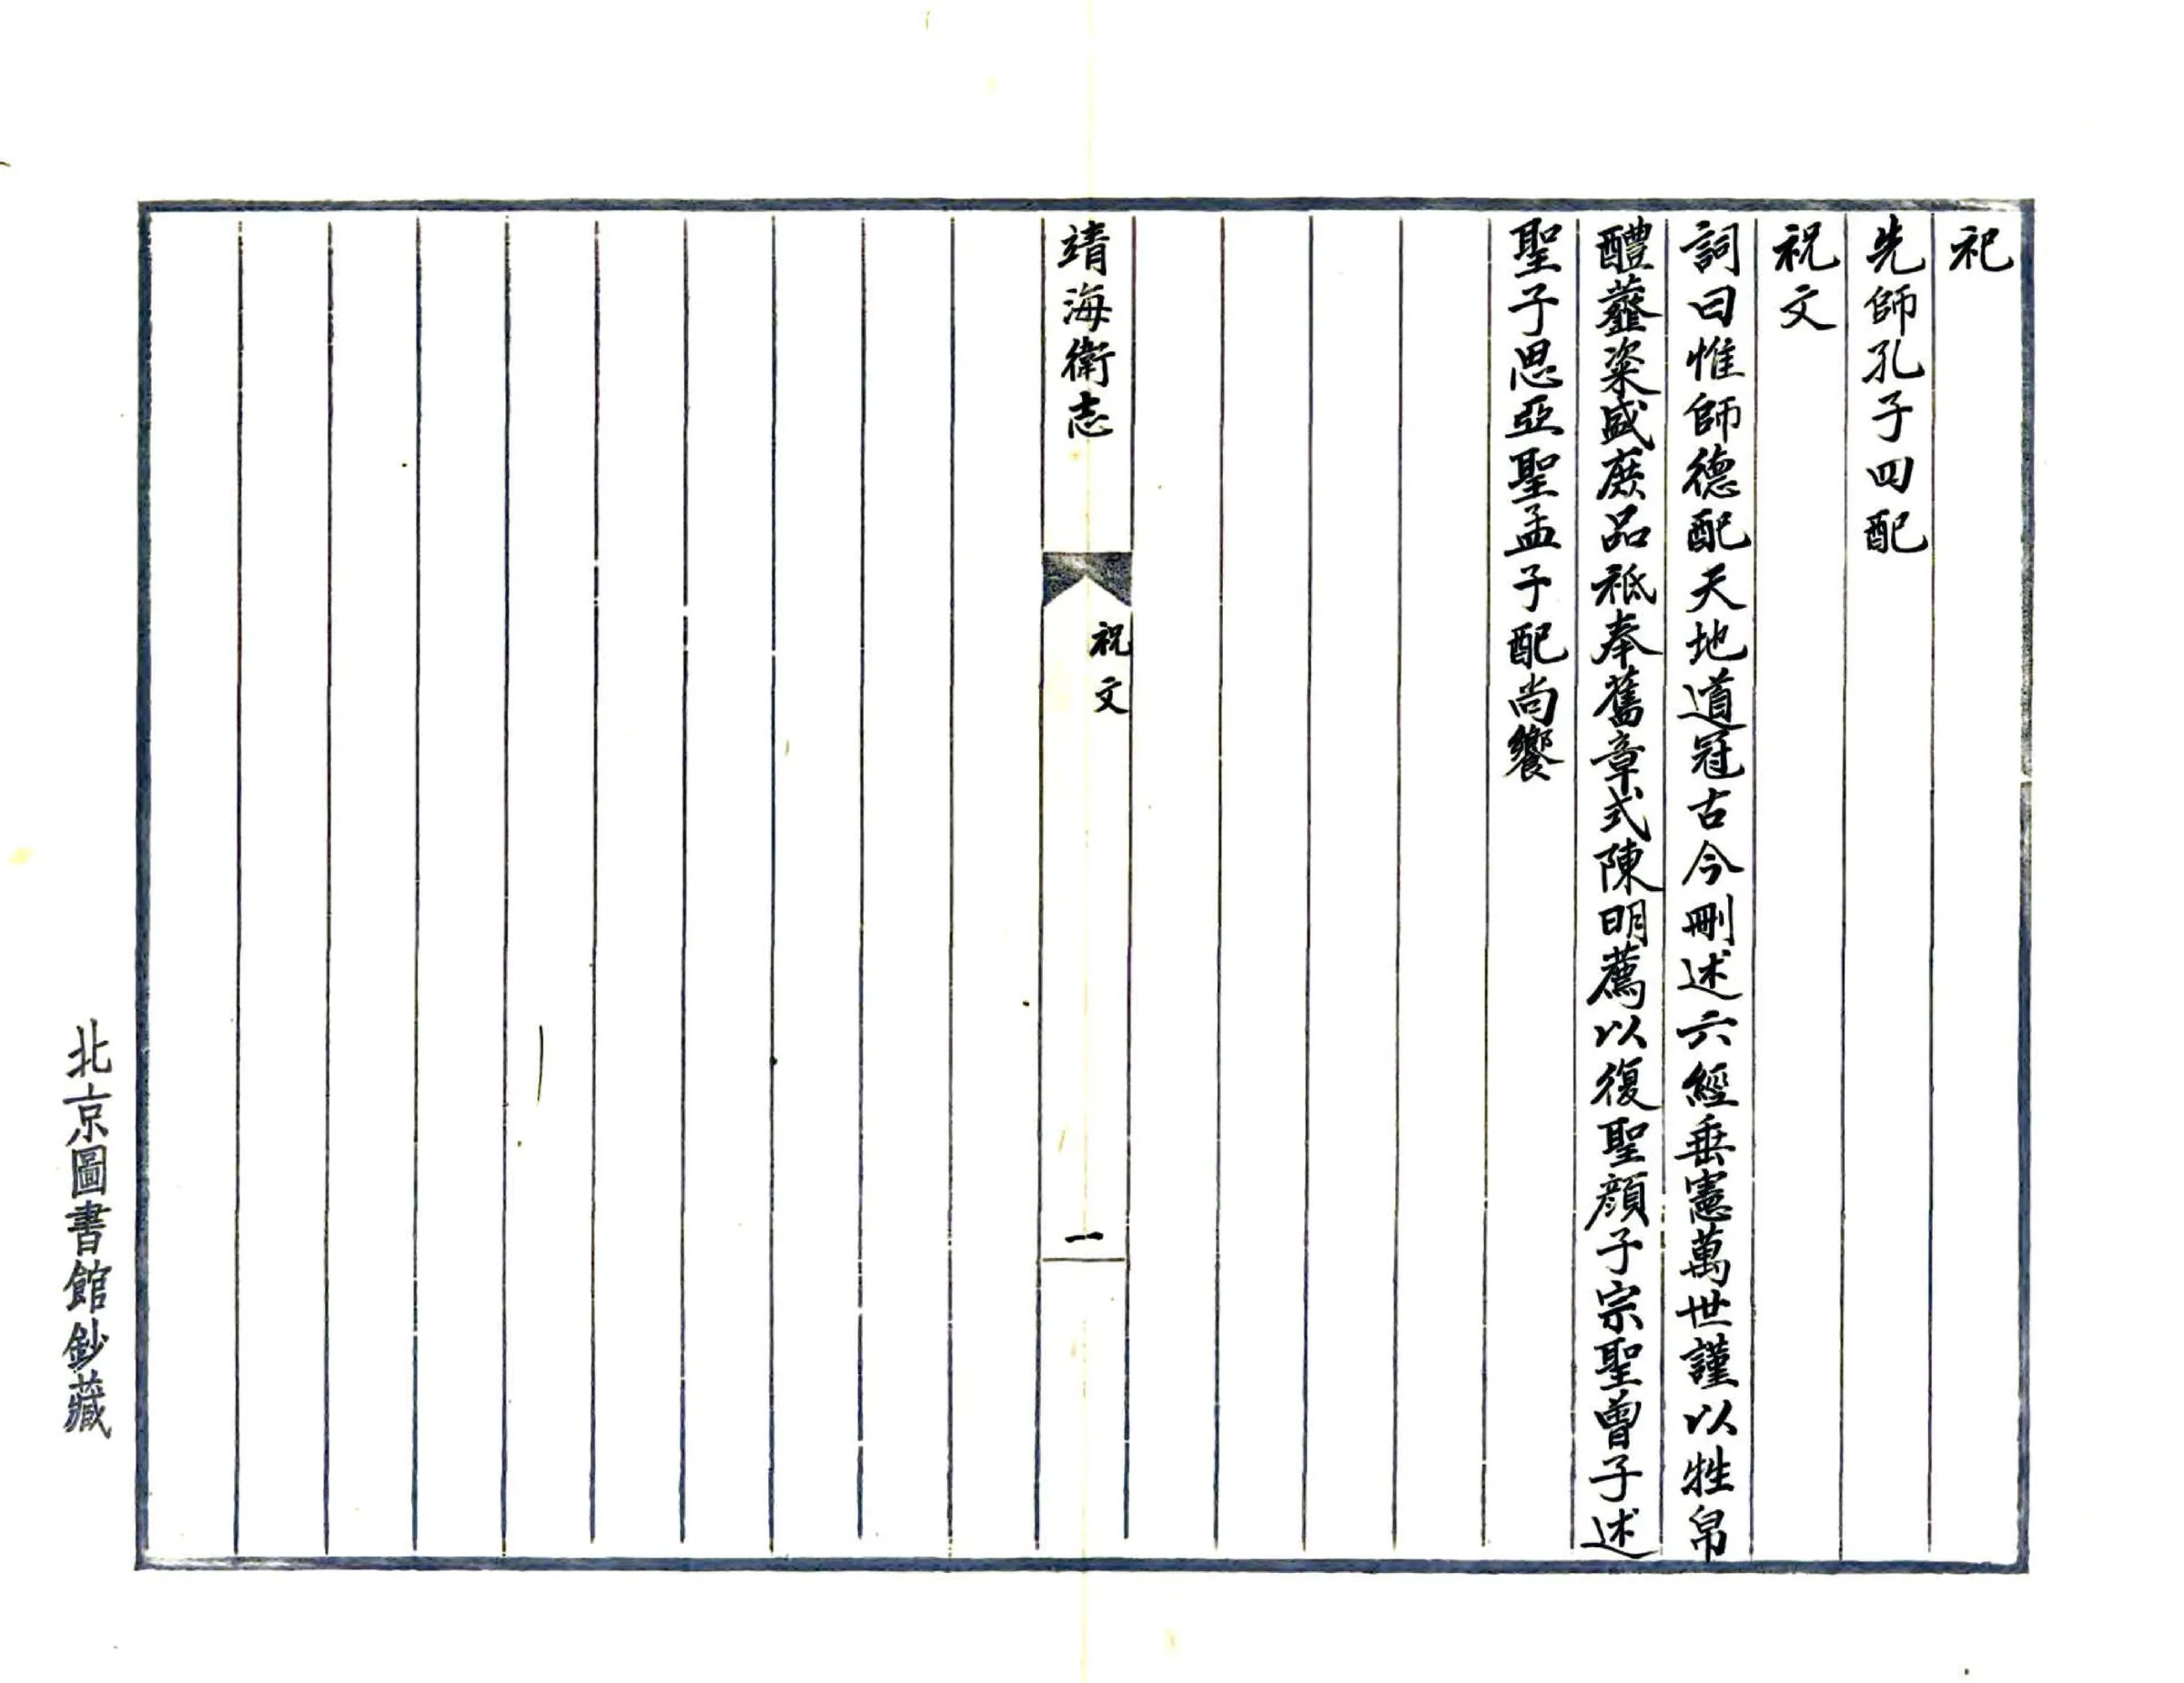 祀
先師孔子四配
祝文
詞曰惟師德配天地道冠古今刪述六經垂憲萬世謹以牲帛
醴虀粢盛庶品祗奉舊章式陳明薦以復聖顔子宗聖曾子述
聖子思亞聖孟子配尚饗
靖海衛志
祝文
一
北京圖書館鈔藏